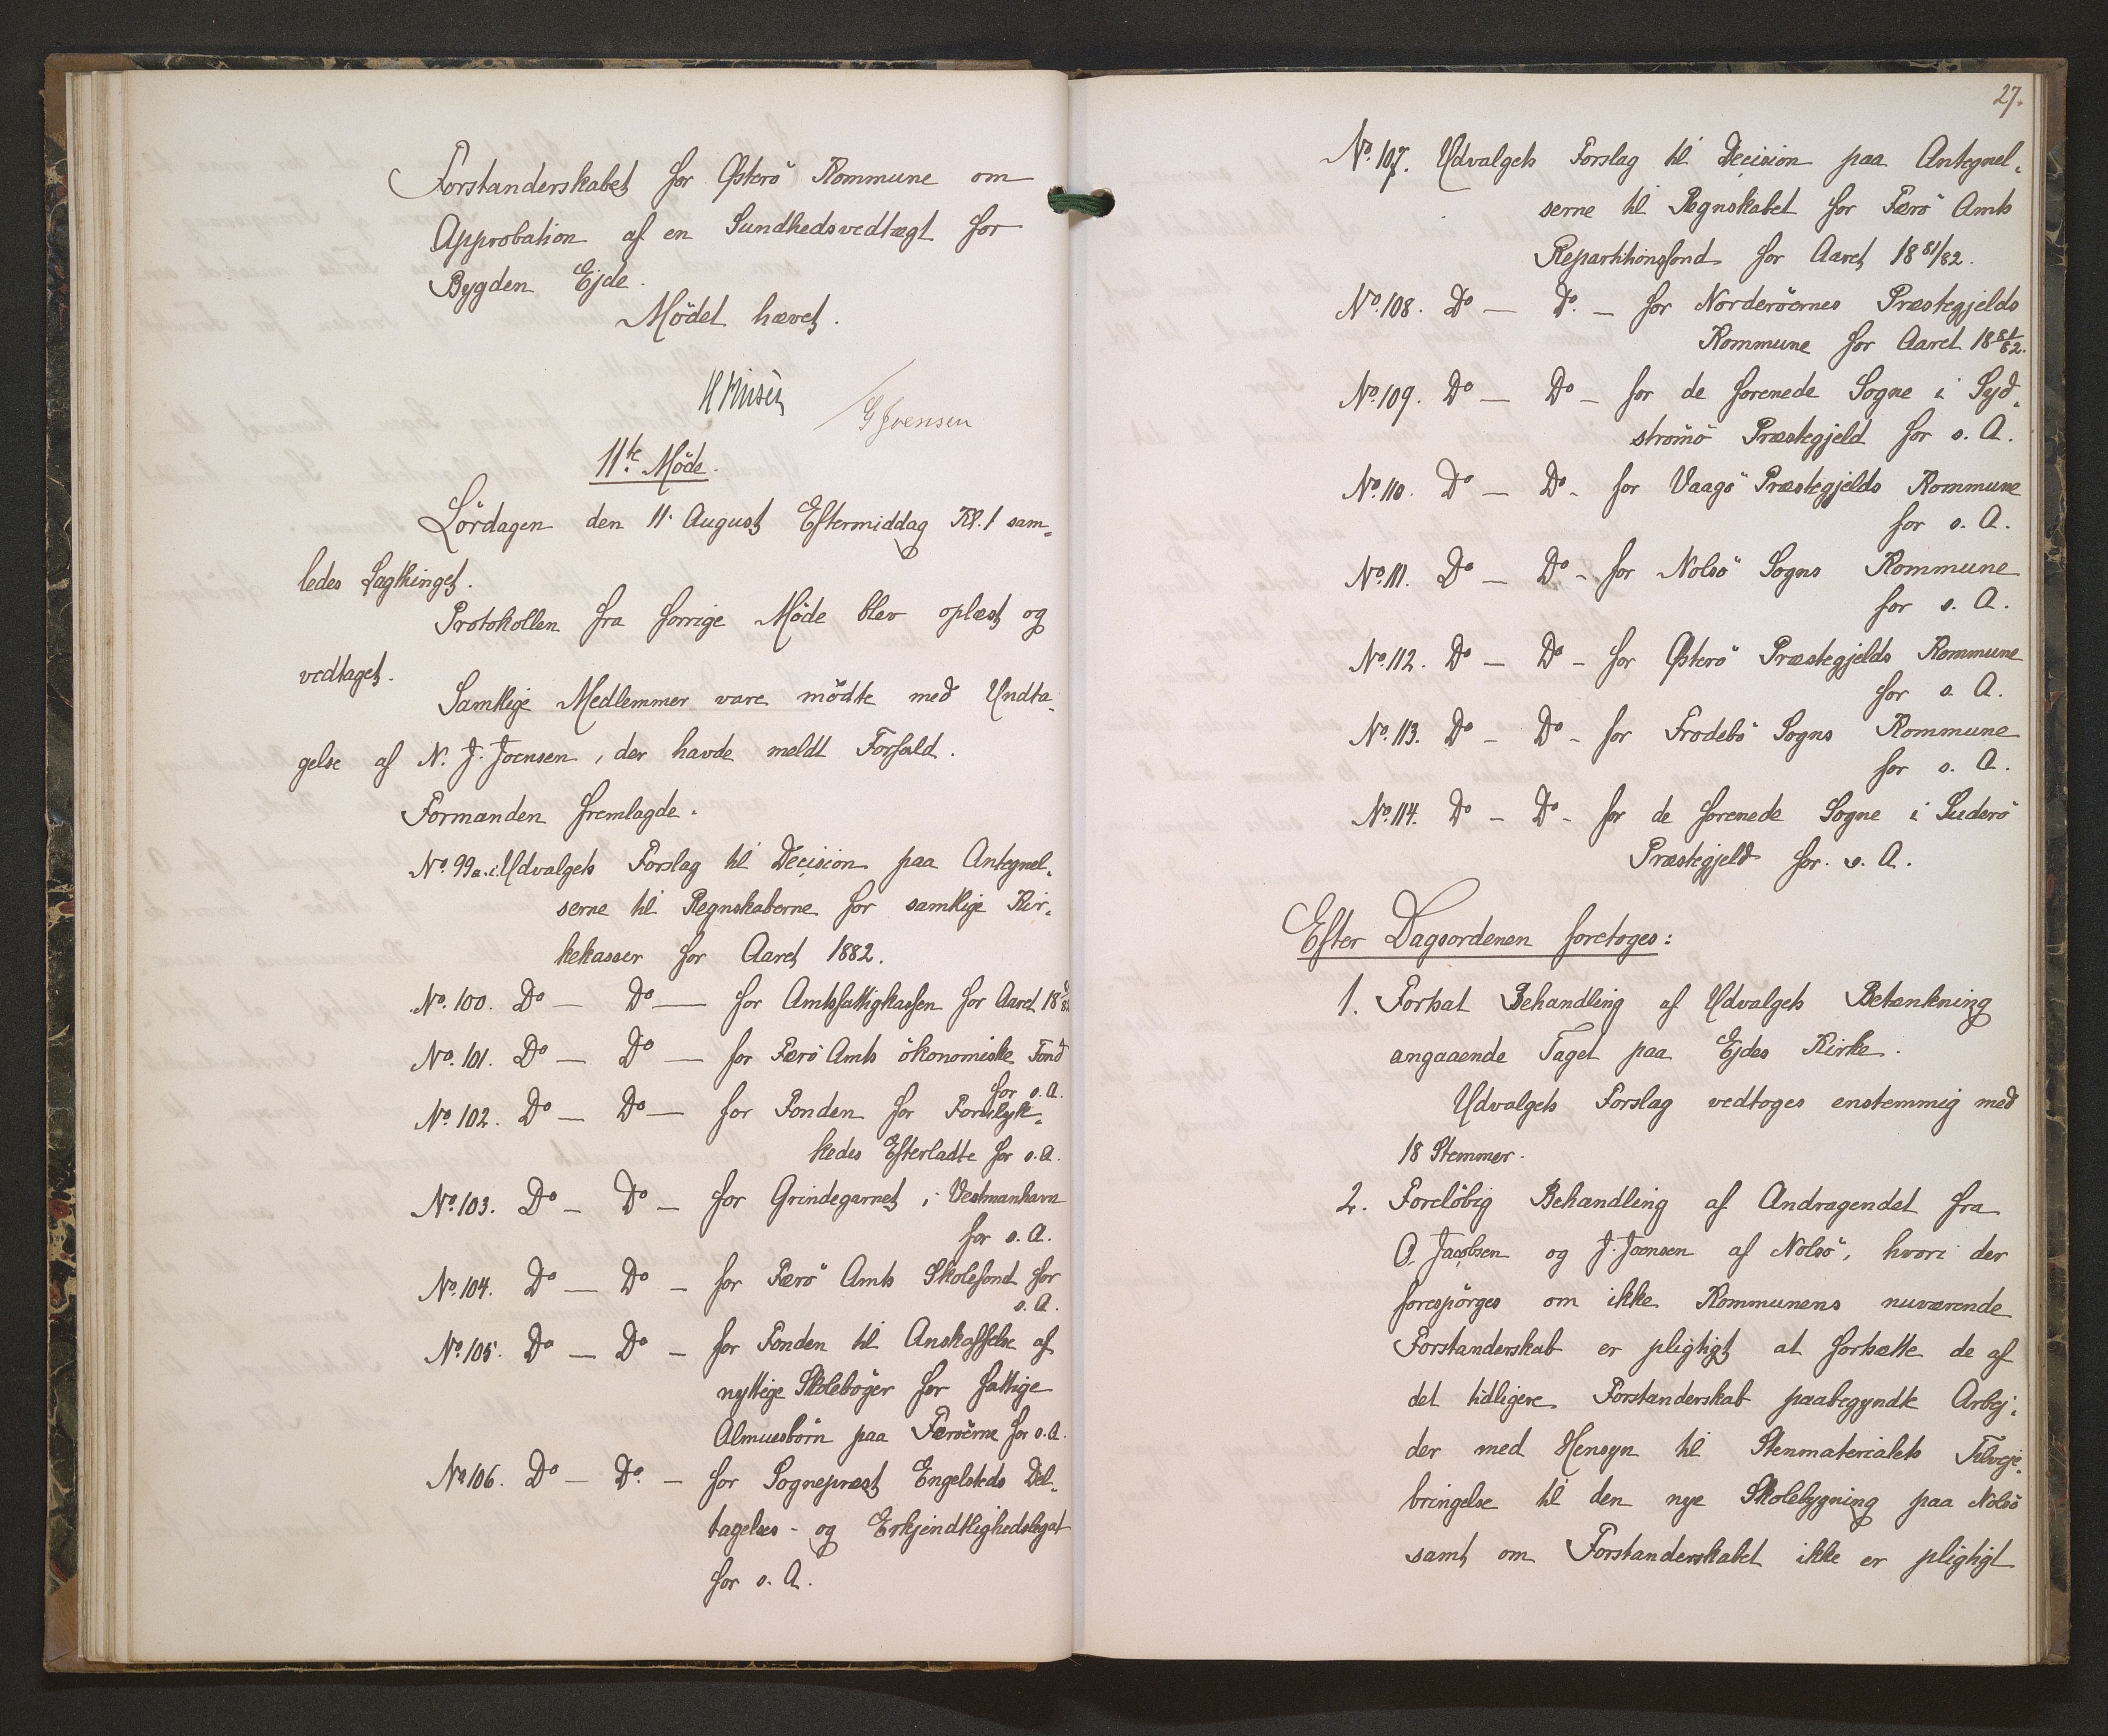 Forstanderskabet for Østerö Kommune om
Approbation af en Sundhedsvedtægt for
Bygden Ejde.
Mödet hævet.
G Joensen
11te Möde.
Lördagen den 11. August Eftermiddag Kl. 1 sam-
ledes Lagthinget.
Protokollen fra forrige Möde blev oplæst og
vedtaget.
Samtlige Medlemmer vare mödte med Undta-
gelse af N. J. Joensen, der havde meldt Forfald.
Formanden fremlagde.
No. 99 a.i. Udvalgets Forslag til Decision paa Antegnel-
serne til Regnskaberne for samtlige Kir-
kekasser for Aaret 1882.
No. 100. Do — Do — for Amtsfattigkassen for Aaret 18 81/82
No. 101. Do — Do — for Færö Amts ökonomiske Fond
for s. A.
No. 102. Do — Do — for Fonden for Forulyk-
kedes Efterladte for s. A.
No. 103. Do — Do — for Grindegarnet i Vestmanhavn
for s. A.
No. 104. Do — Do — for Færö Amts Skolefond for
s. A.
No. 105. Do — Do — for Fonden til Anskaffelse af
nyttige Skoleböger for fattige
Almuesbörn paa Færöerne for s. A.
No. 106. Do — Do. — for Sognepræst Engelsteds Del-
tagelses- og Erkjendtlighedslegat
for s. A.
27.
No. 107. Udvalgets Forslag til Decision paa Antegnel-
serne til Regnskabet for Færö Amts
Repartitionsfond for Aaret 18 81/82.
No. 108. Do — Do. — for Norderöernes Præstegjelds
Kommune for Aaret 18 81/82.
No. 109. Do — Do — for de forenede Sogne i Syd-
strömö Præstegjeld for s. A.
No. 110. Do — Do - for Vaagö Præstegjelds Kommune
for s. A.
No. 111. Do — Do - for Nolsö Sogns Kommune
for s. A.
No. 112. Do — Do - for Østerö Præstegjelds Kommune
for s. A.
No. 113. Do — Do - for Frodebö Sogns Kommune
for s. A.
No. 114. Do — Do - for de forenede Sogne i Suderö
Præstegjeld for. s. A.
Efter Dagsordenen foretoges:
1. Fortsat Behandling af Udvalgets Betænkning
angaaende Taget paa Ejdes Kirke.
Udvalgets Forslag vedtoges enstemmig med
18 Stemmer.
2. Foreløbig Behandling af Andragendet fra
O. Jacobsen og J. Joensen af Nolsö, hvori der
forespörges om ikke Kommunens nuværende
Forstanderskab er pligtigt at fortsætte de af
det tidligere Forstanderskab paabegyndte Arbej-
der med Hensyn til Stenmaterialets Tilveje-
bringelse til den nye Skolebygning paa Nolsö
samt om Forstanderskabet ikke er pligtigt